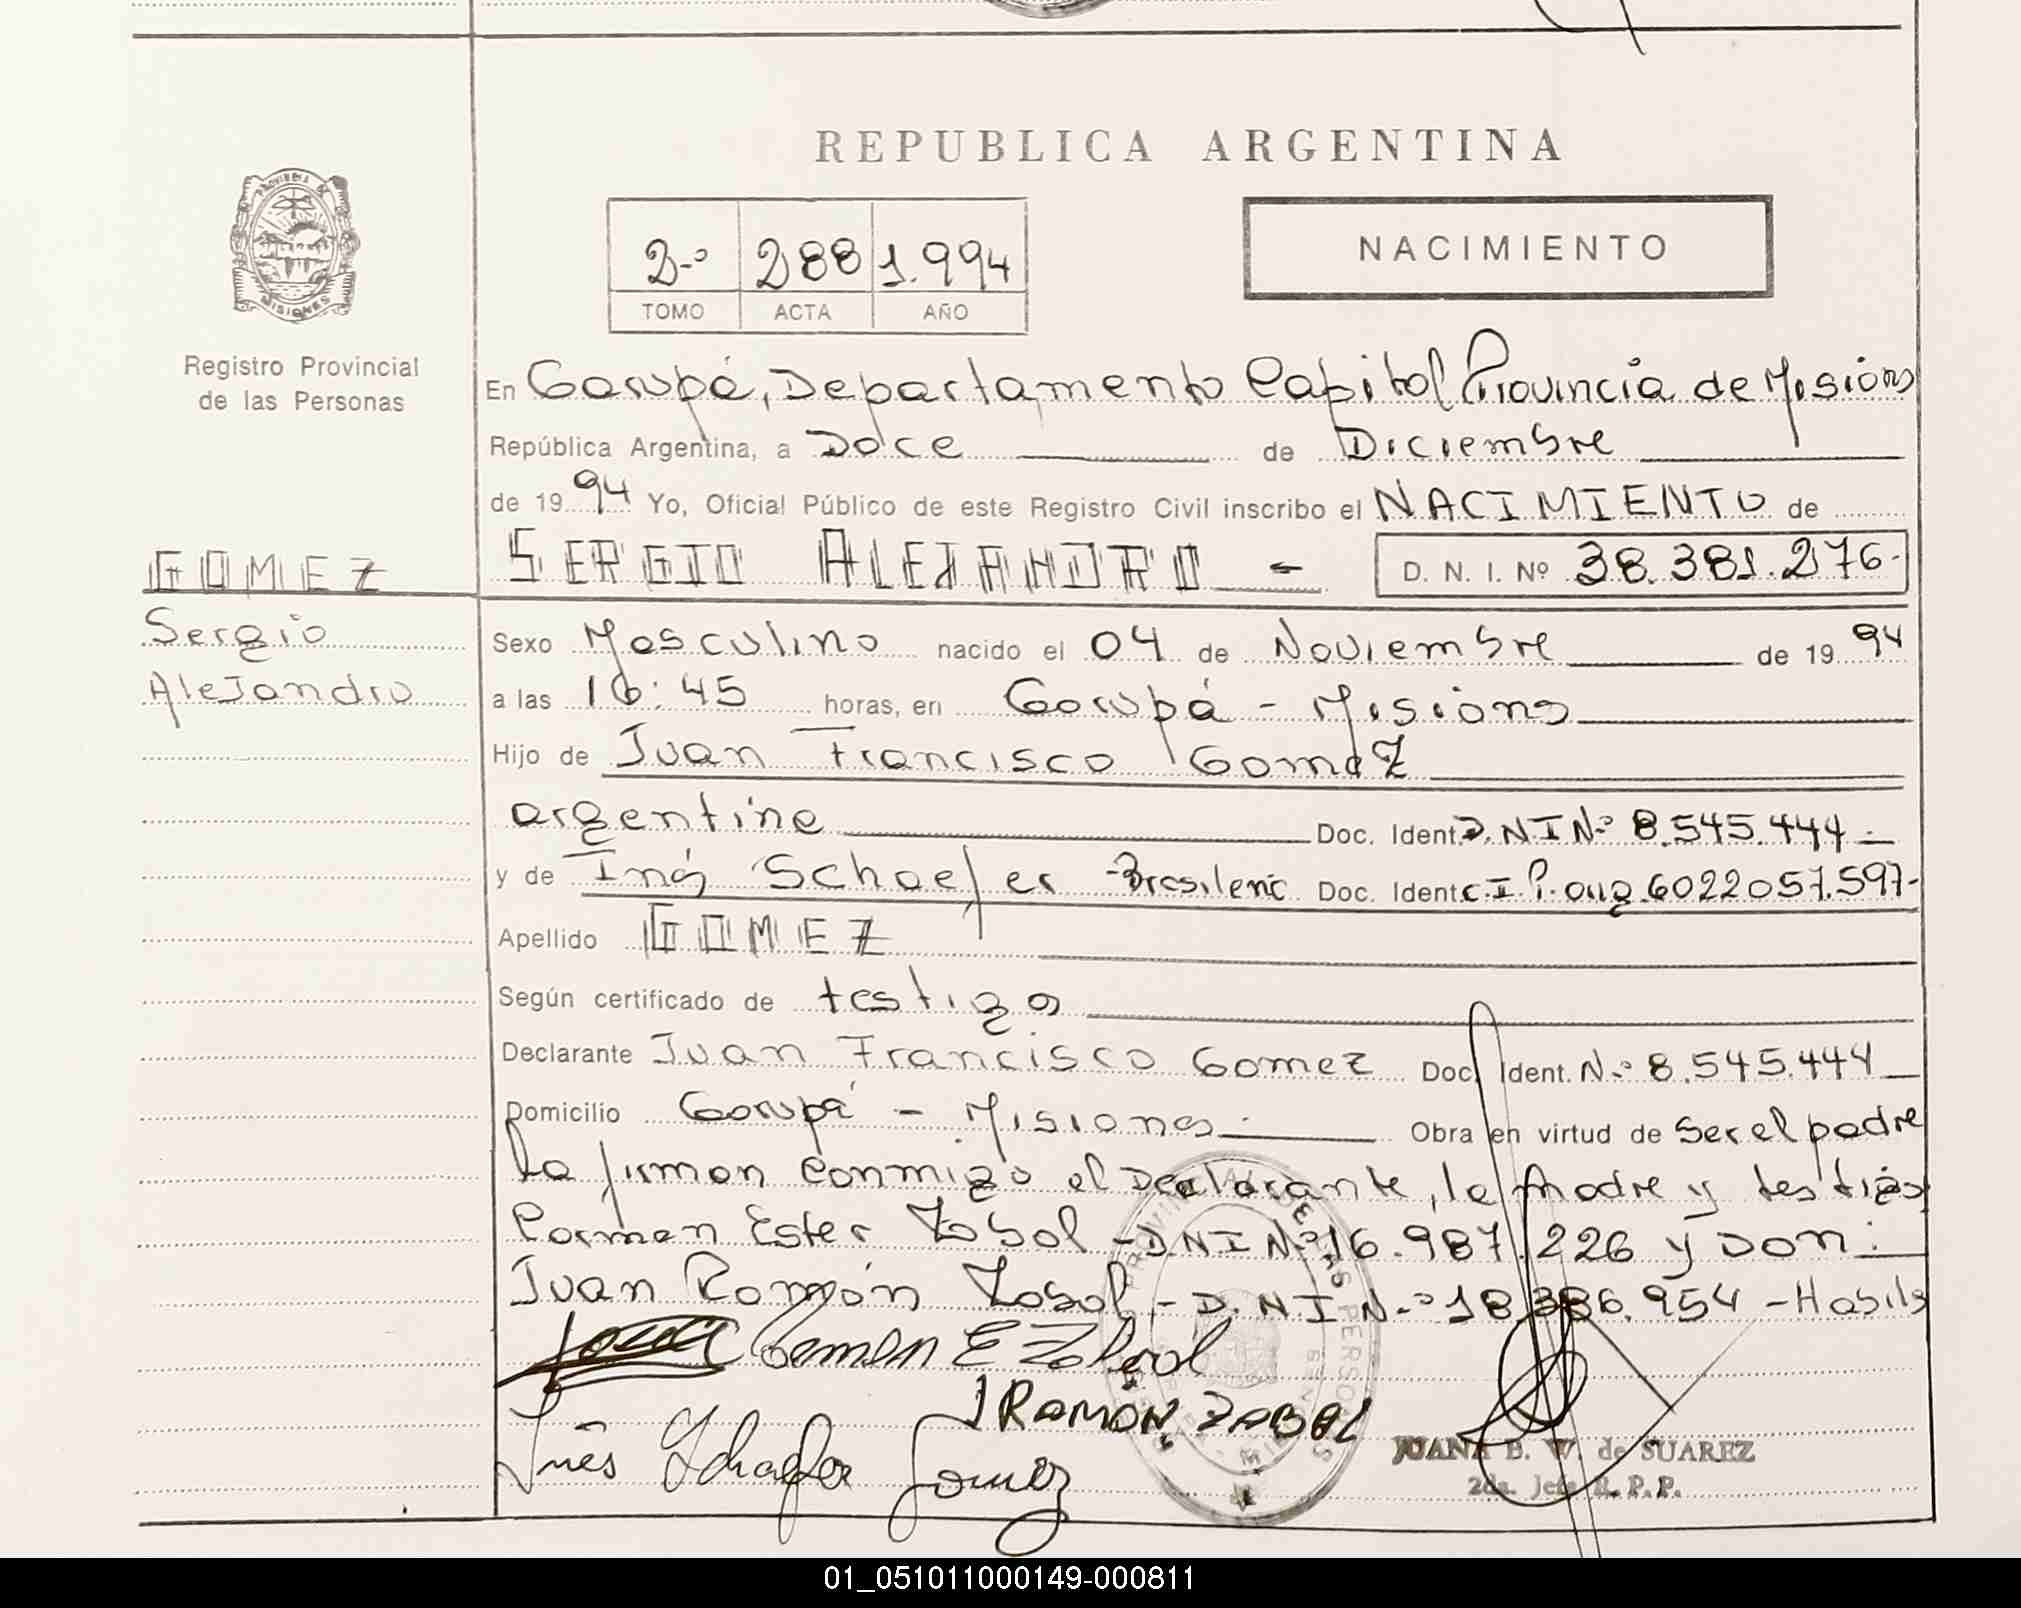 REPUBLICA ARGENTINA
PROVINCIA DE
MISIONES
2-º 288 1.994
TOMO ACTA AÑO
NACIMIENTO
Registro Provincial
de las Personas
En Garupá, Departamento Capital Provincia de Misiones
República Argentina, a Doce de Diciembre
de 1994 Yo, Oficial Público de este Registro Civil inscribo el NACIMIENTO de
GOMEZ
Sergio
Alejandro
SERGIO ALEJANDRO - D. N. I. Nº 38.381.276-
Sexo Masculino nacido el 04 de Noviembre de 1994
a las 16:45 horas, en Garupá - Misiones
Hijo de Juan Francisco Gomez
argentino Doc. Ident. D.N.I N-º 8.545.444
y de Inés Schaefer - Brasilera Doc. Ident. C.I. 6022057.597-
Apellido GOMEZ
Según certificado de testigos
Declarante Juan Francisco Gomez Doc. Ident. N-º 8.545.444
Domicilio Garupá - Misiones Obra en virtud de Ser el padre
La firman conmigo el Declarante, la Madre y testigos
Carmen Ester Zabol - D.N.I N-º 16.987.226 y DON:
Juan Ramón Zabol - D.N.I N-º 18.386.954 - Habils
Carmen E Zabol
J RAMÓN ZABOL
Inês Schaefer Gomez
JUANA E. W. de SUAREZ
2da. Jefe R. P. P.
01_051011000149-000811